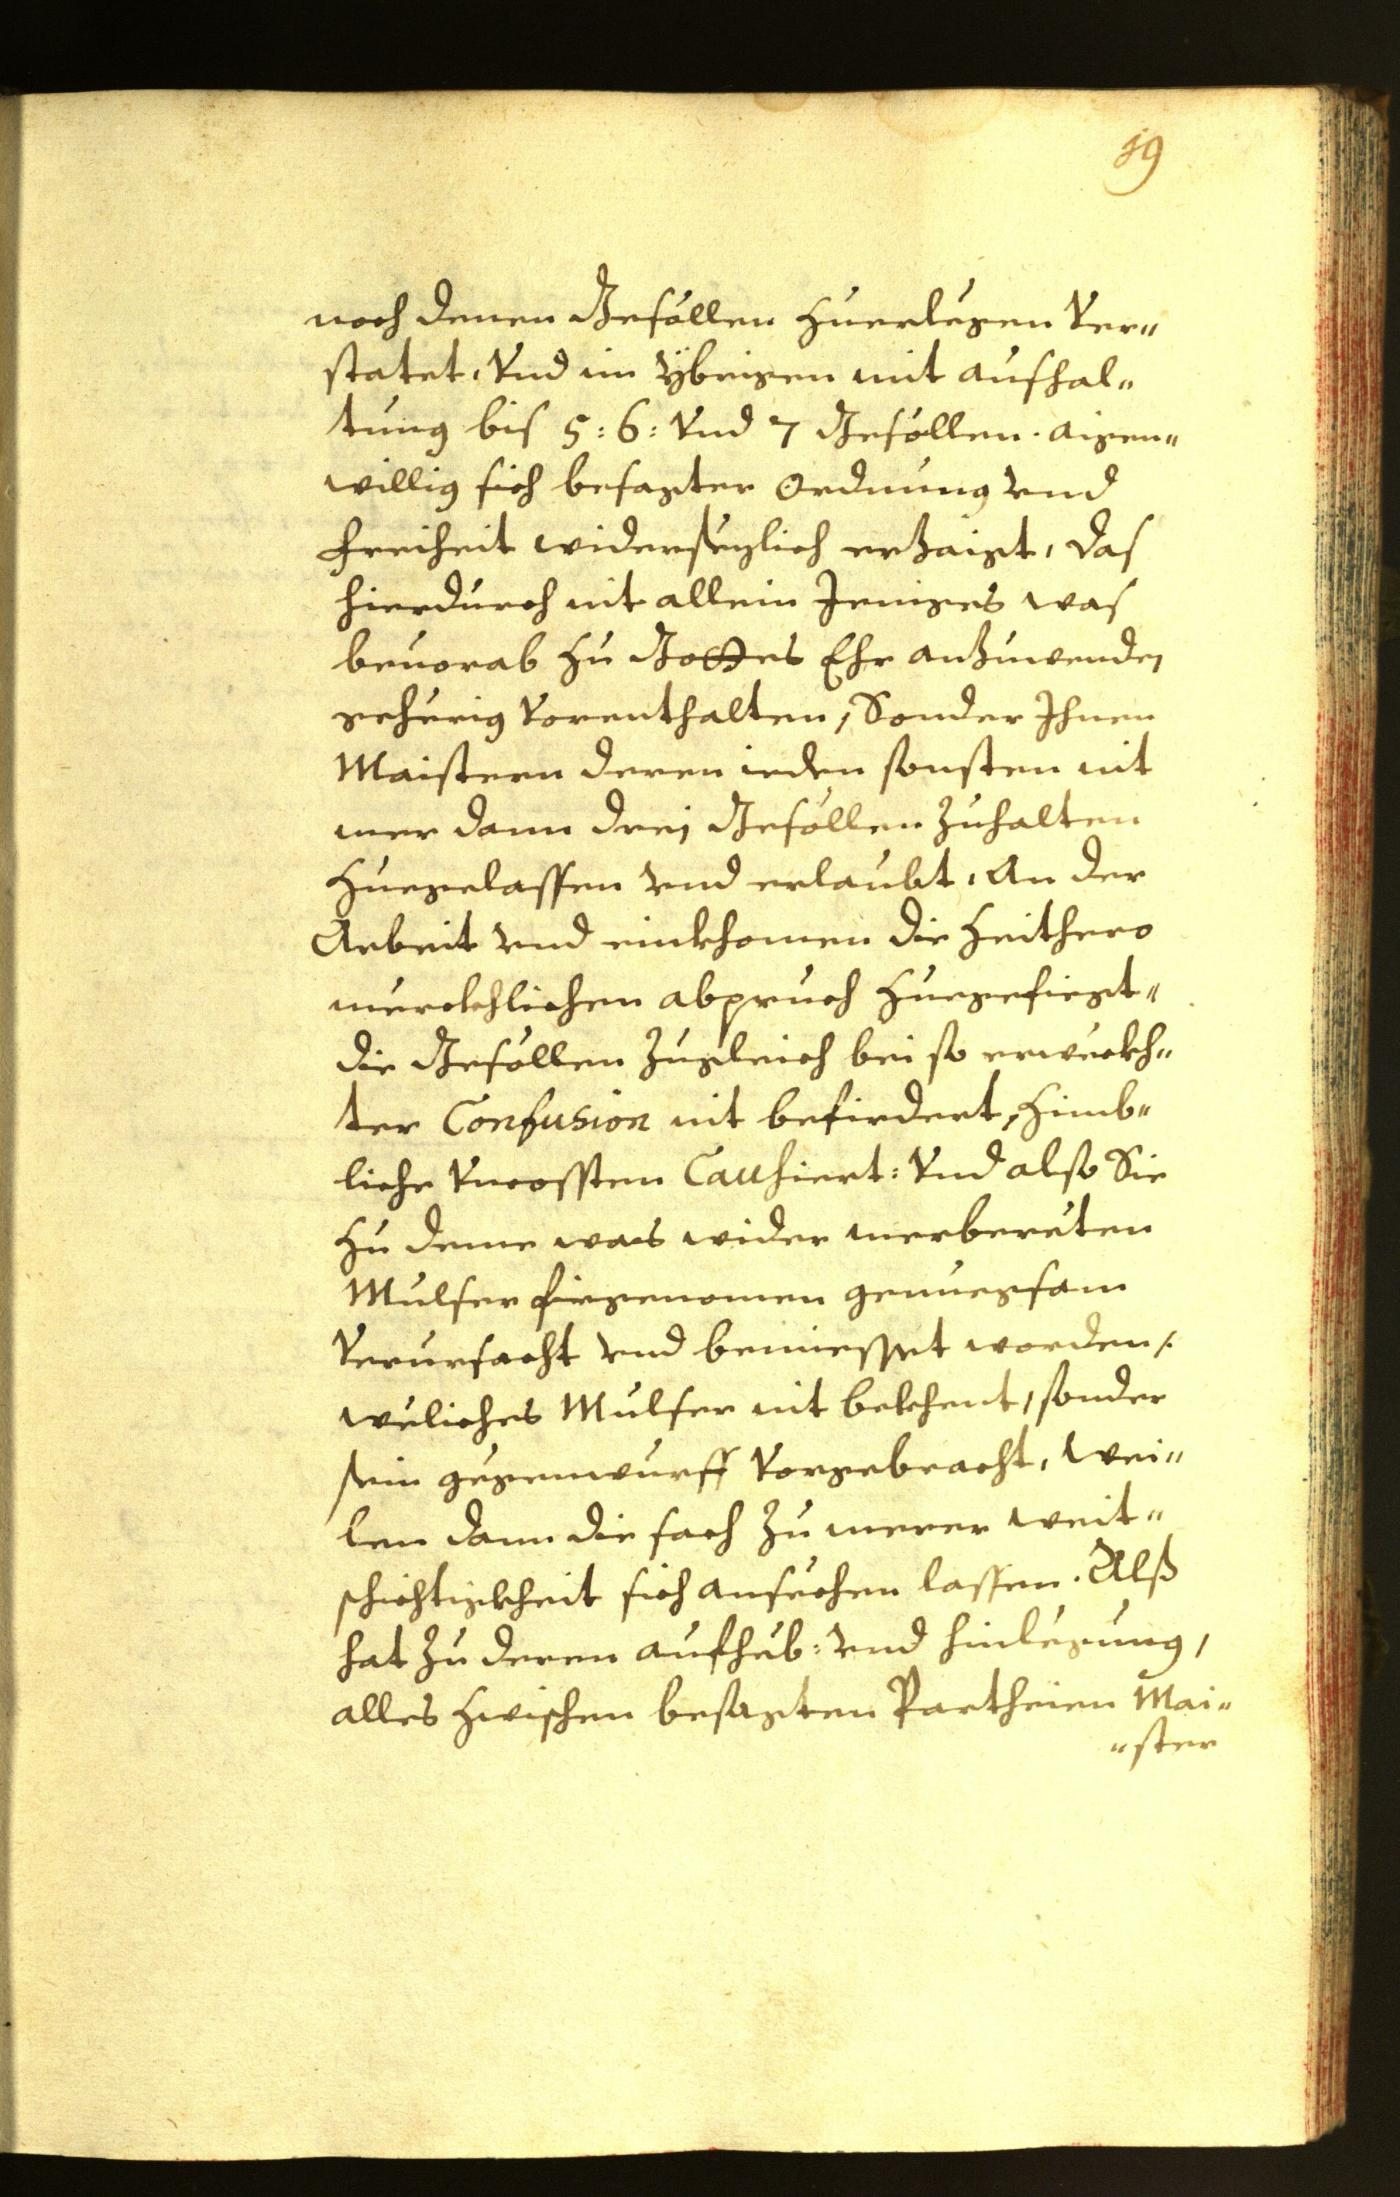 19
noch denen Gesöllen zuerlegen ver„
statet, Vnd im ÿbrigen mit aufhal„
tung bis 5: 6: Vnd 7 Gesöllen. aigen„
willig sich besagter Ordnung vnd
freiheit widersezlich erzaigt, das
hierdurch nit allein Jeniges was
beuorab zu Gottes Ehr anzuwenden
gehörig vorenthalten, Sonder Ihnen
Maistern deren ieden sonsten nit
mer dann drei Gesöllen zuhalten
zuegelassen vnd erlaubt, An der
Arbeit vnd einkhomen die Zeithero
merckhlichen abpruch zuegefiegt„
die Gesöllen zugleich bei so erweckh„
ter Confusion nit befirdert, zimb„
liche Vncossten Causiert: Vnd also Sie
zu deme was wider merberüten
Mulser firgenomen genuegsam
Verursacht vnd bemiessiget worden,
weliches Mulser nit bekhent, sonder
sein gegenwurff vorgebracht, Wei„
len dann die sach zu merer weit„
schichtigkheit sich ansechen lassen. Alß
hat zu deren aufheb: vnd hinlegung,
alles zwischen besagten Partheien Mai„
„ster